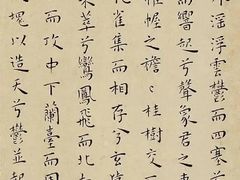 淫浮雲鬱而四塞兮
而響起兮聲象君之車
帷幄之襜〻桂樹交
雀集而相存兮玄猿
來萃兮鸞鳳飛而北南
而攻中下蘭臺而周
塊以造天兮鬱並起